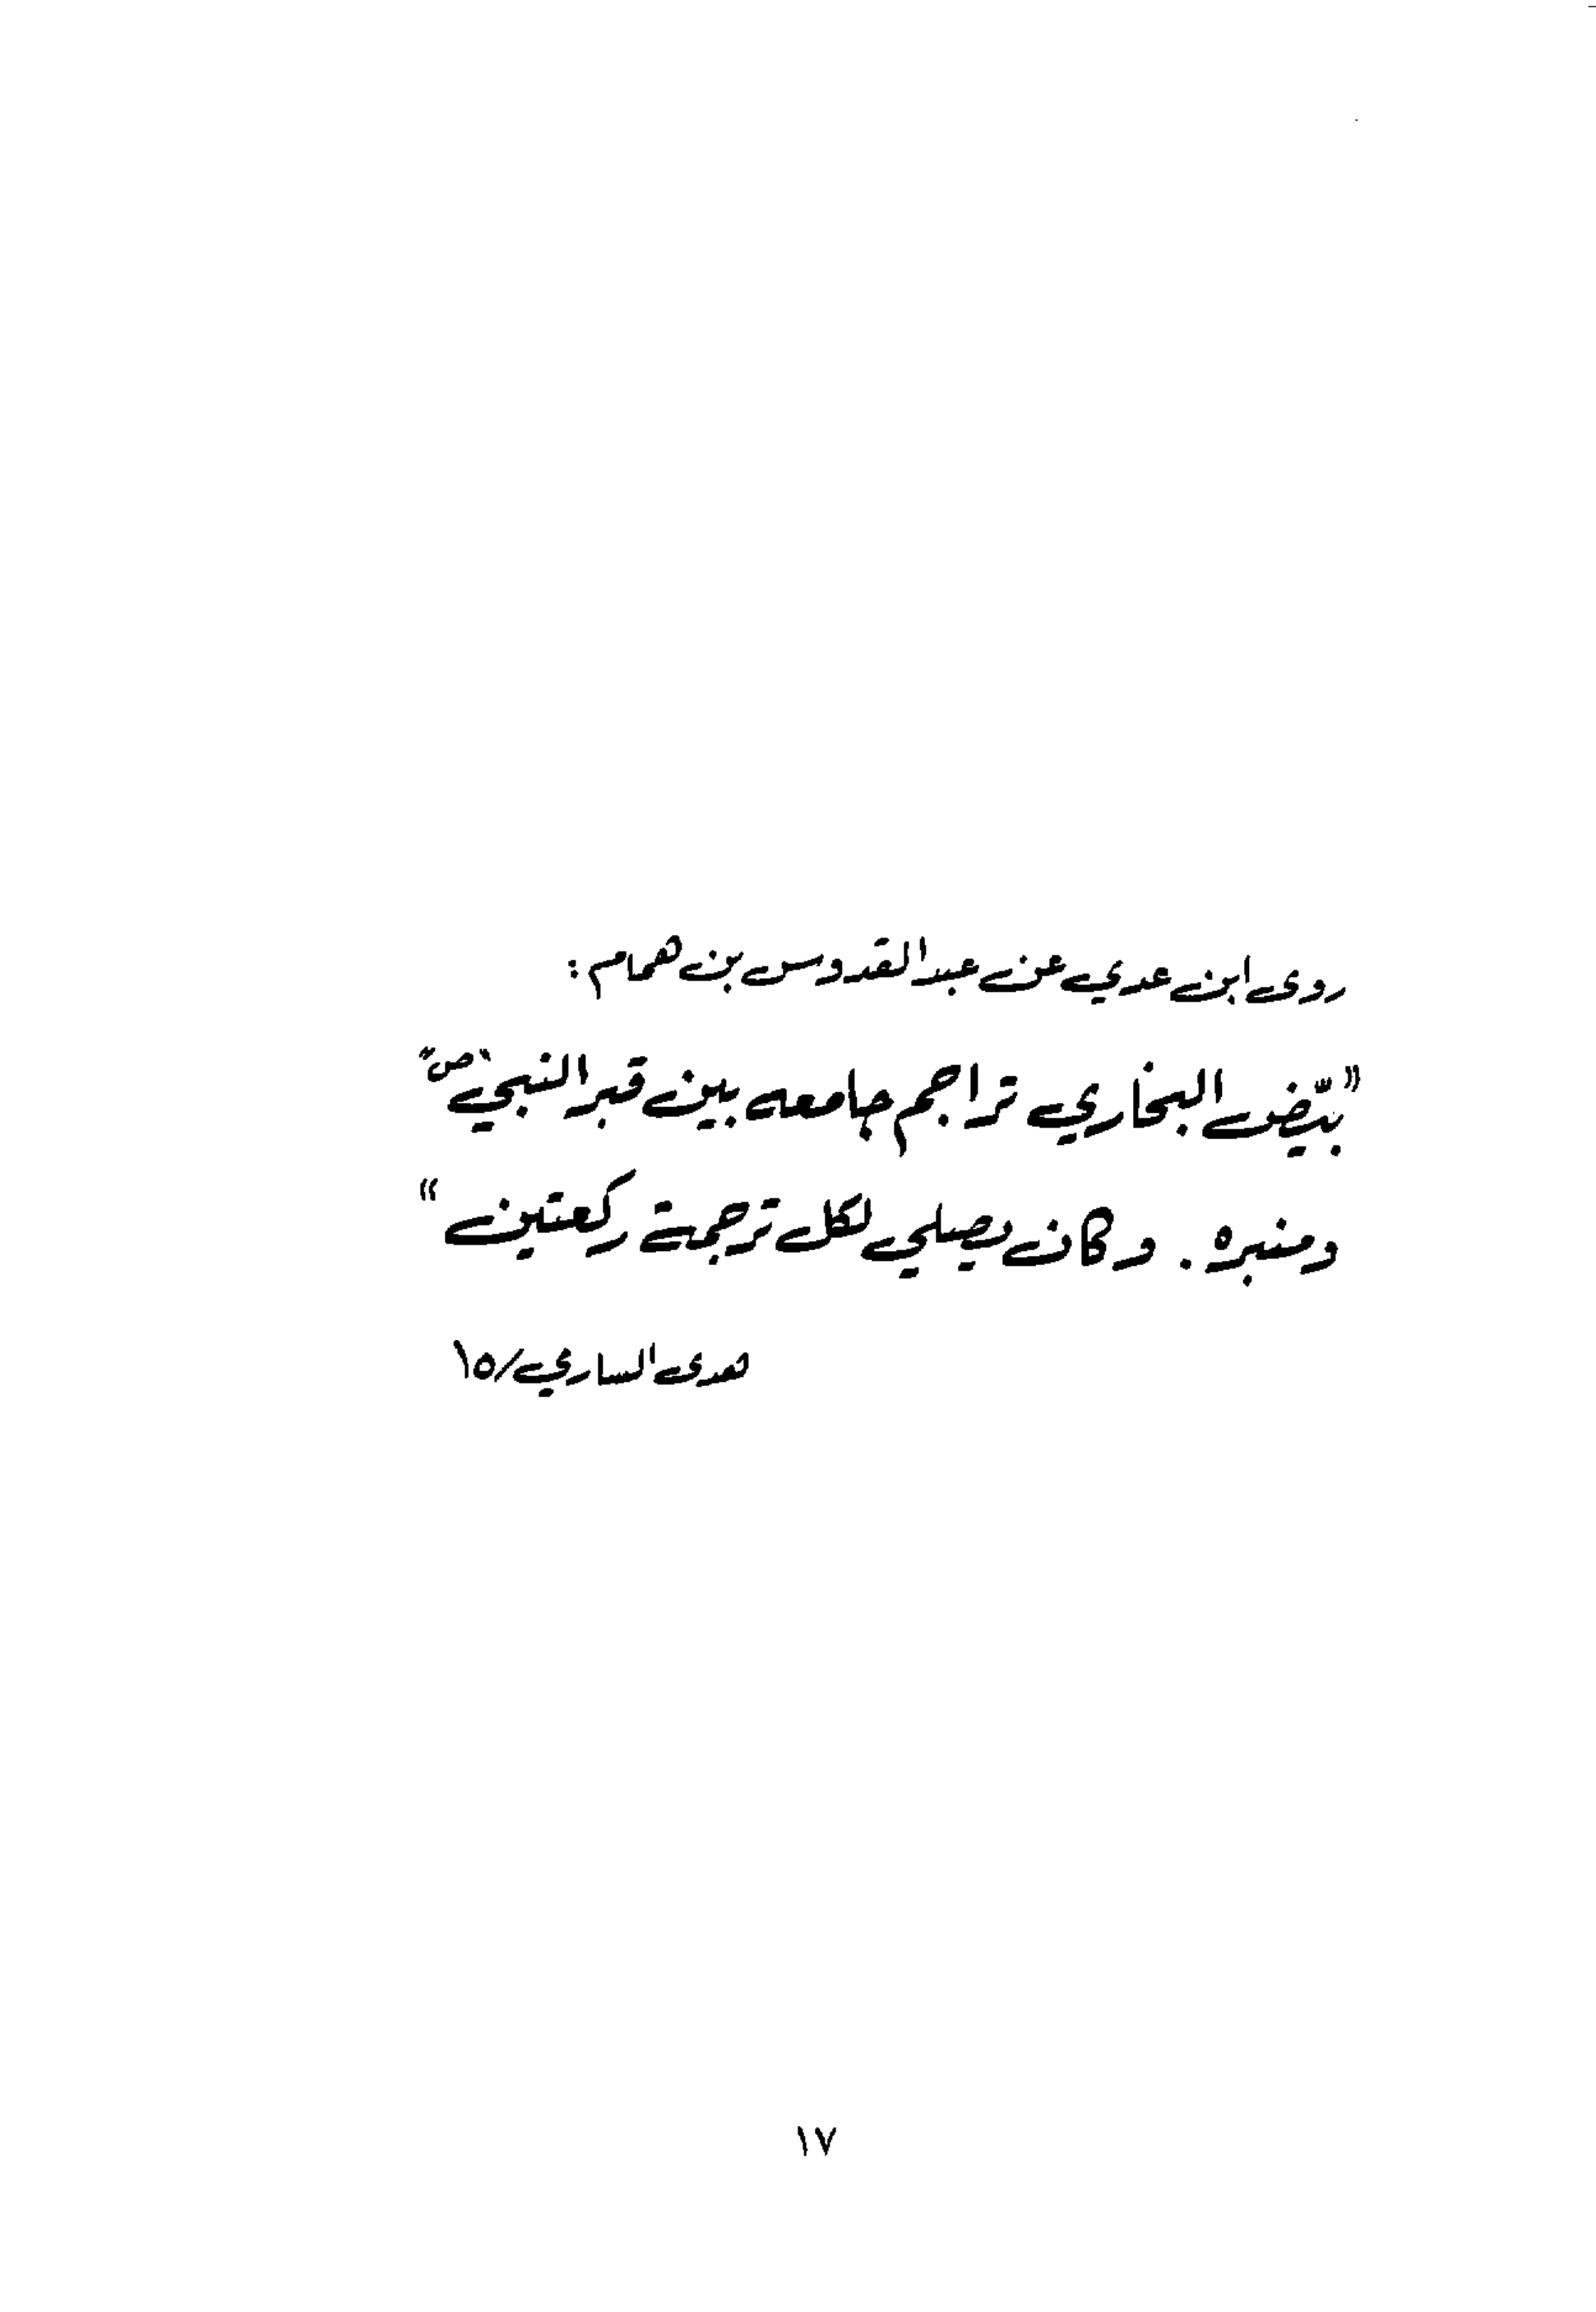 روى ابن عدي عن عبد القدوس بن همام :
"بيّض البخاري تراجم جامعه بين قبر النبي "ص"
ومنبره . وكان يصلي لكل ترجمة ركعتين"
هدى الساري/١٥
١٧